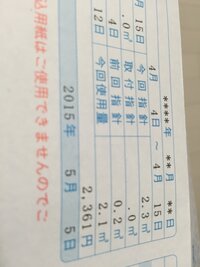 ****年 **月 **日
4月 4日 ~ 4月 15日
月 15日 今回指針 2.3㎥
.0㎥ 取付指針 .0㎥
4日 前回指針 0.2㎥
12日 今回使用量 2.1㎥
2,361円
2015年 5月 5日
込用紙はご使用できませんのでご